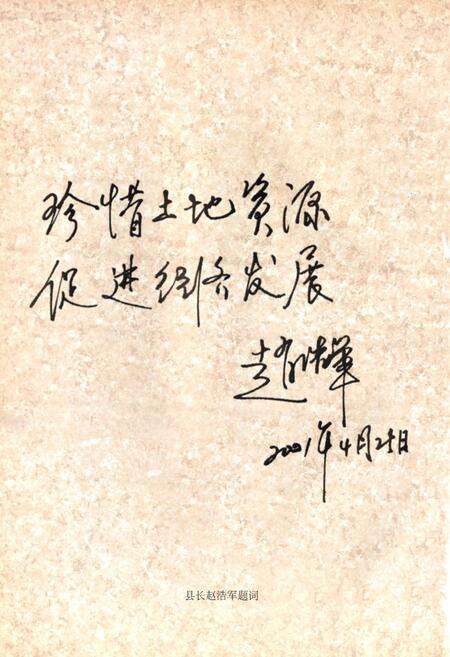 珍惜土地资源
促进经济发展
赵浩军
2001年4月25日
县长赵浩军题词